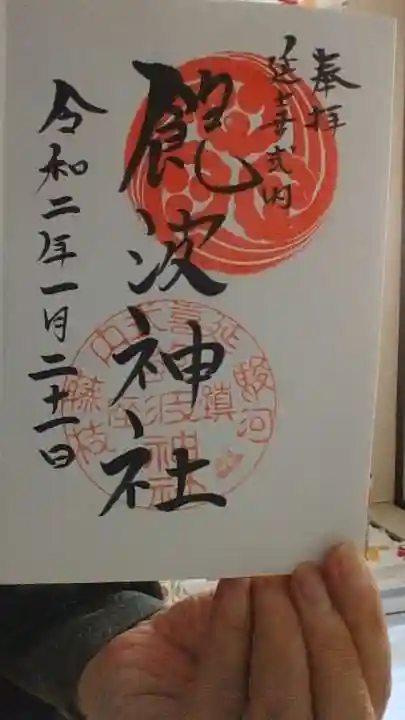 奉拝
延喜式内
飽波神社
令和二年一月二十一日
延喜式内
駿河
藤枝
鎮座
飽波神社